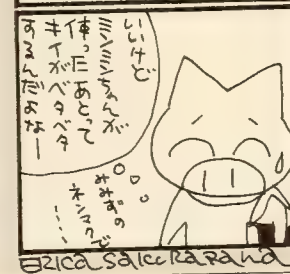 いいけど
ミンミンちゃんが
使ったあとって
キイがベタベタ
するんだよなー
みみずの
ネンマクで
・・・・
ERICa SaKURaRaNa